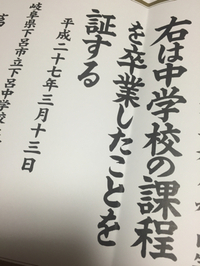 右は中学校の課程
を卒業したことを
証する
平成二十七年三月十三日
岐阜県下呂市立下呂中学校